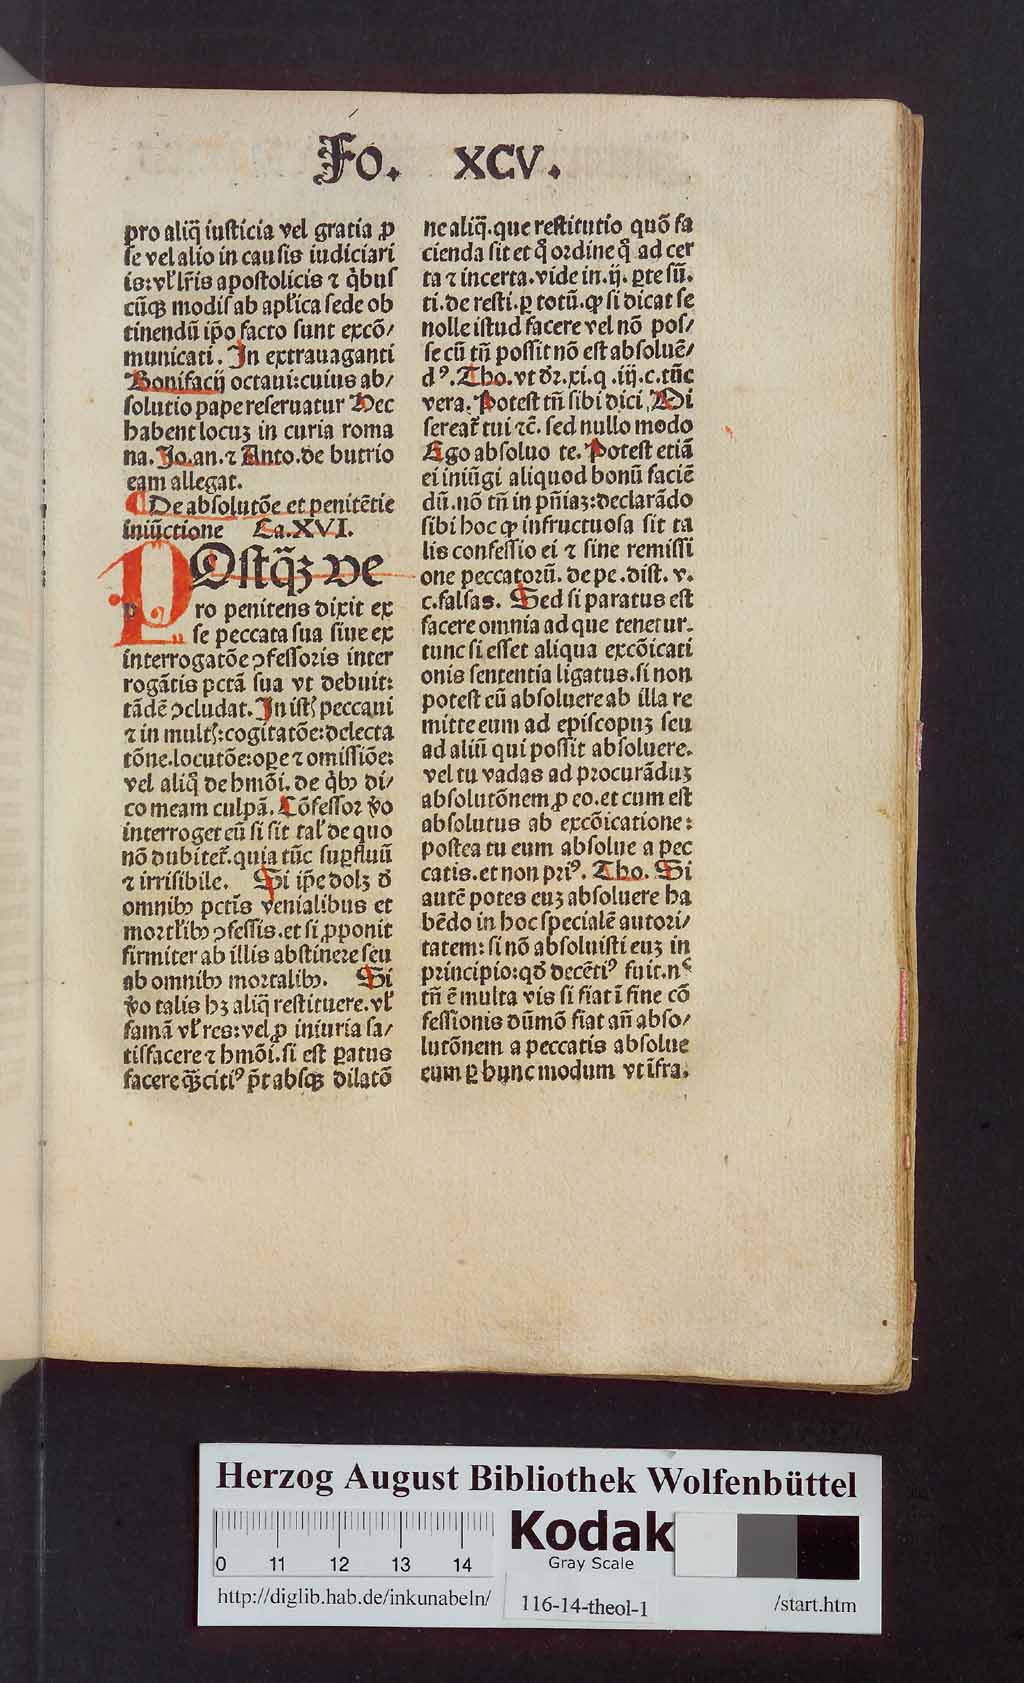 Fo. XCV.
pro aliq̄ iusticia vel gratia ꝓ
se vel alio in causis iudiciari
is: vl̓ lr̄is apostolicis ⁊ q̄bus
cūqꝫ modis ab apl̓ica sede ob
tinendū ip̄o facto sunt excō/
municati. In extrauaganti
Bonifacij octaui: cuius ab/
solutio pape reseruatur Nec
habent locuꝫ in curia roma
na. Jo. an. ⁊ Anto. de butrio
eam allegat.
De absolutōe et penitētie
iniūctione Ca. XVI.
POstq̄ꝫ ve
ro penitens dixit ex
se peccata sua siue ex
interrogatōe ꝯfessoris inter
rogātis pctā sua vt debuit:
tādē ꝯcludat. In istꝭ peccaui
⁊ in multꝭ: cogitatōe: delecta
tōne. locutōe: oꝑe ⁊ omissiōe:
vel aliq̄ de hmōi. de q̄bꝰ di/
co meam culpā. Cōfessor v̓o
interroget eū si sit tal̓ de quo
nō dubitet̄. quia tūc suꝑfluū
⁊ irrisibile. Si ip̄e dolꝫ d̓
omnibꝰ pctīs venialibus et
mortl̓ibꝰ ꝯfessis. et si ꝓponit
firmiter ab illis abstinere seu
ab omnibꝰ mortalibꝰ. Si
v̓o talis hꝫ aliq̄ restituere. vl̓
famā vl̓ res: vel ꝓ iniuria sa/
tisfacere ⁊ hmōi. si est ꝑatus
facere qꝫ̄ citiꝰ p̄t absqꝫ dilatō
ne aliq̄. que restitutio quō fa
cienda sit et q̄ ordine q̄ ad cer
ta ⁊ incerta. vide in. ij. ꝑte sū.
ti. de resti. ꝑ totū. ꝙ si dicat se
nolle istud facere vel nō pos/
se cū tn̄ possit nō est absoluē/
dꝰ. Tho. vt d̓r. xi. q. iij. c. tūc
vera. Potest tn̄ sibi dici, Mi
sereat̄ tui ⁊c̄. sed nullo modo
Ego absoluo te. Potest etiā
ei iniūgi aliquod bonū faciē
dū. nō tn̄ in pn̄iaꝫ: declarādo
sibi hoc ꝙ infructuosa sit ta
lis confessio ei ⁊ sine remissi
one peccatorū. de pe. dist. v.
c. falsas. Sed si paratus est
facere omnia ad que tenetur.
tunc si esset aliqua excōicati
onis sententia ligatus. si non
potest eū absoluere ab illa re
mitte eum ad episcopuꝫ seu
ad aliū qui possit absoluere.
vel tu vadas ad procurāduꝫ
absolutōnem ꝓ eo. et cum est
absolutus ab excōicatione:
postea tu eum absolue a pec
catis. et non priꝰ. Tho. Si
autē potes euꝫ absoluere ha
bēdo in hoc specialē autori/
tatem: si nō absoluisti euꝫ in
principio: qd̓ decētiꝰ fuit. nꝭ
tn̄ ē multa vis si fiat ī fine cō
fessionis dūmō fiat an̄ abso/
lutōnem a peccatis absolue
eum ꝑ hunc modum vt īfra.
Herzog August Bibliothek Wolfenbüttel
0 11 12 13 14
Kodak
Gray Scale
http://diglib.hab.de/inkunabeln/
116-14-theol-1
/start.htm